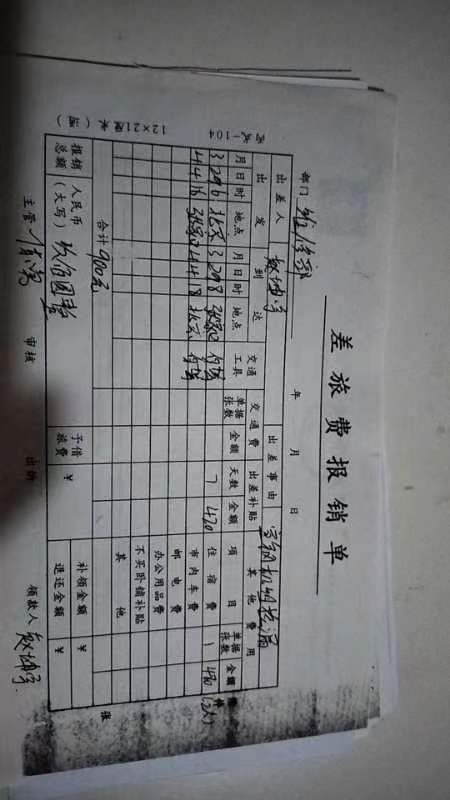 差旅费报销单
部门 维修部 年 月 日
出差人 出差事由
出发 到达 交通工具 交通费 出差补贴 其他费用
月 日 时 地点 月 日 时 地点 单据张数 金额 天数 金额 项目 单据张数 金额
3 29 6 北京 3 29 8 张家口 7 420 住宿费 1
4 4 16 张家口 4 4 18 北京 市内车费
邮电费
办公用品费
不买卧铺补贴
其他
合计 900元
报销总额 人民币（大写） 玖佰圆整 预借旅费 ￥ 补领金额 ￥
退还金额 ￥
主管 审核 出纳 领款人